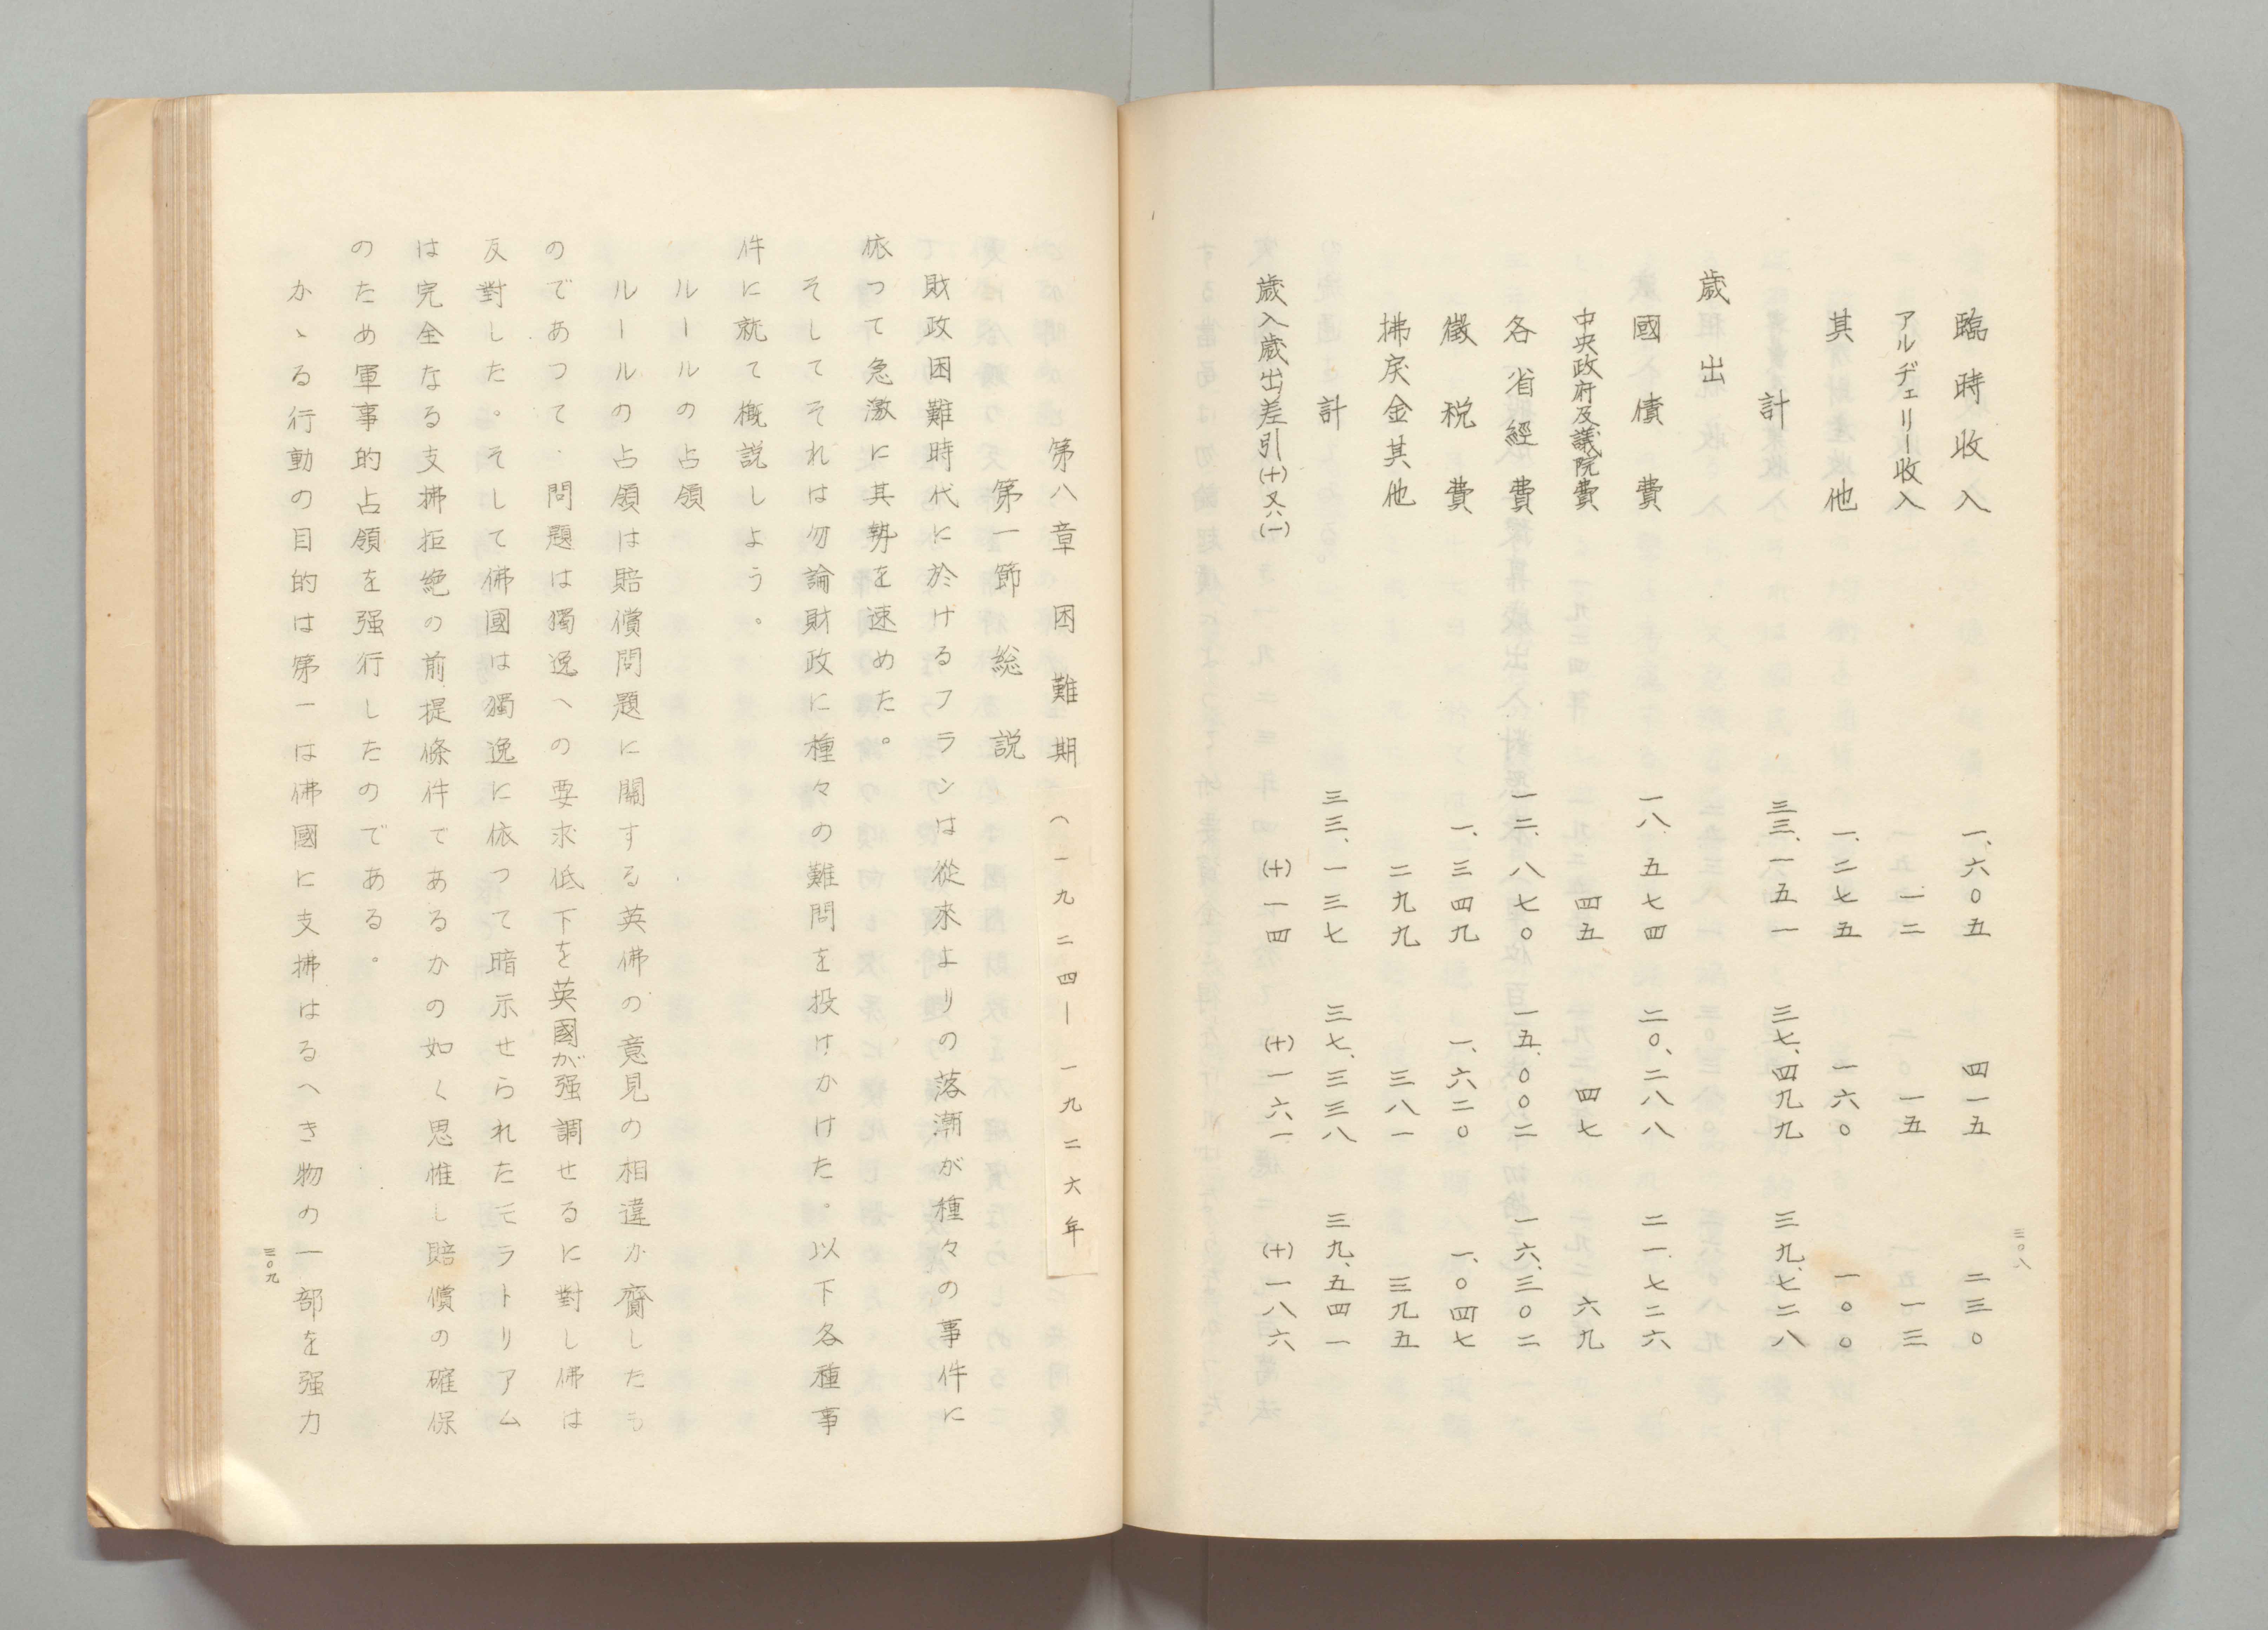 臨時收入 一、六〇五 四一五 二三〇
アルヂェリー收入 一二 一五 一三
其他 一、二七五 一六〇 一〇〇
計 三三、一五一 三七、四九九 三九、七二八
歳出
國債費 一八、五七四 二〇、二八八 二一、七二六
中央政府及議院費 四五 四七 六九
各省經費 一二、八七〇 一五、〇〇二 一六、三〇二
徵税費 一、三四九 一、六二〇 一、〇四七
拂戻金其他 二九九 三八一 三九五
計 三三、一三七 三七、三三八 三九、五四一
歳入歳出差引(十)又ハ(一) (十)一四 (十)一六一 (十)一八六
三〇八
第八章 困難期(一九二四—一九二六年
第一節 総説
財政困難時代に於けるフランは從來よりの落潮が種々の事件に
依つて急激に其勢を速めた。
そしてそれは勿論財政に種々の難問を投けかけた。以下各種事
件に就て概説しよう。
ルールの占領
ルールの占領は賠償問題に關する英佛の意見の相違か齎したも
のであつて、問題は獨逸への要求低下を英國が强調せるに對し佛は
反對した。そして佛國は獨逸に依つて暗示せられたモラトリアム
は完全なる支拂拒絶の前提條件であるかの如く思惟し賠償の確保
のため軍事的占領を强行したのである。
かゝる行動の目的は第一は佛國に支拂はるへき物の一部を强力
三〇九